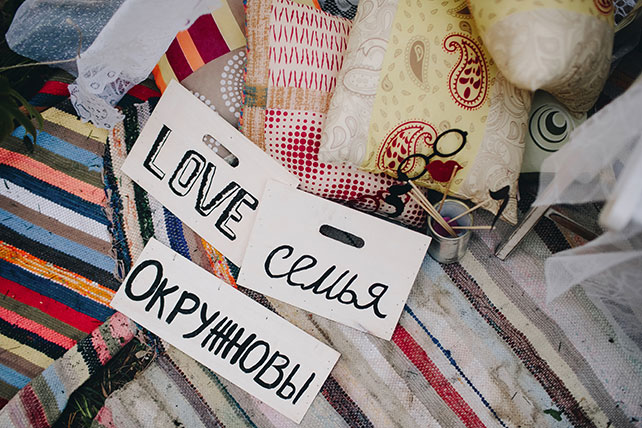 LOVE
семья
ОКРУЖНОВЫ